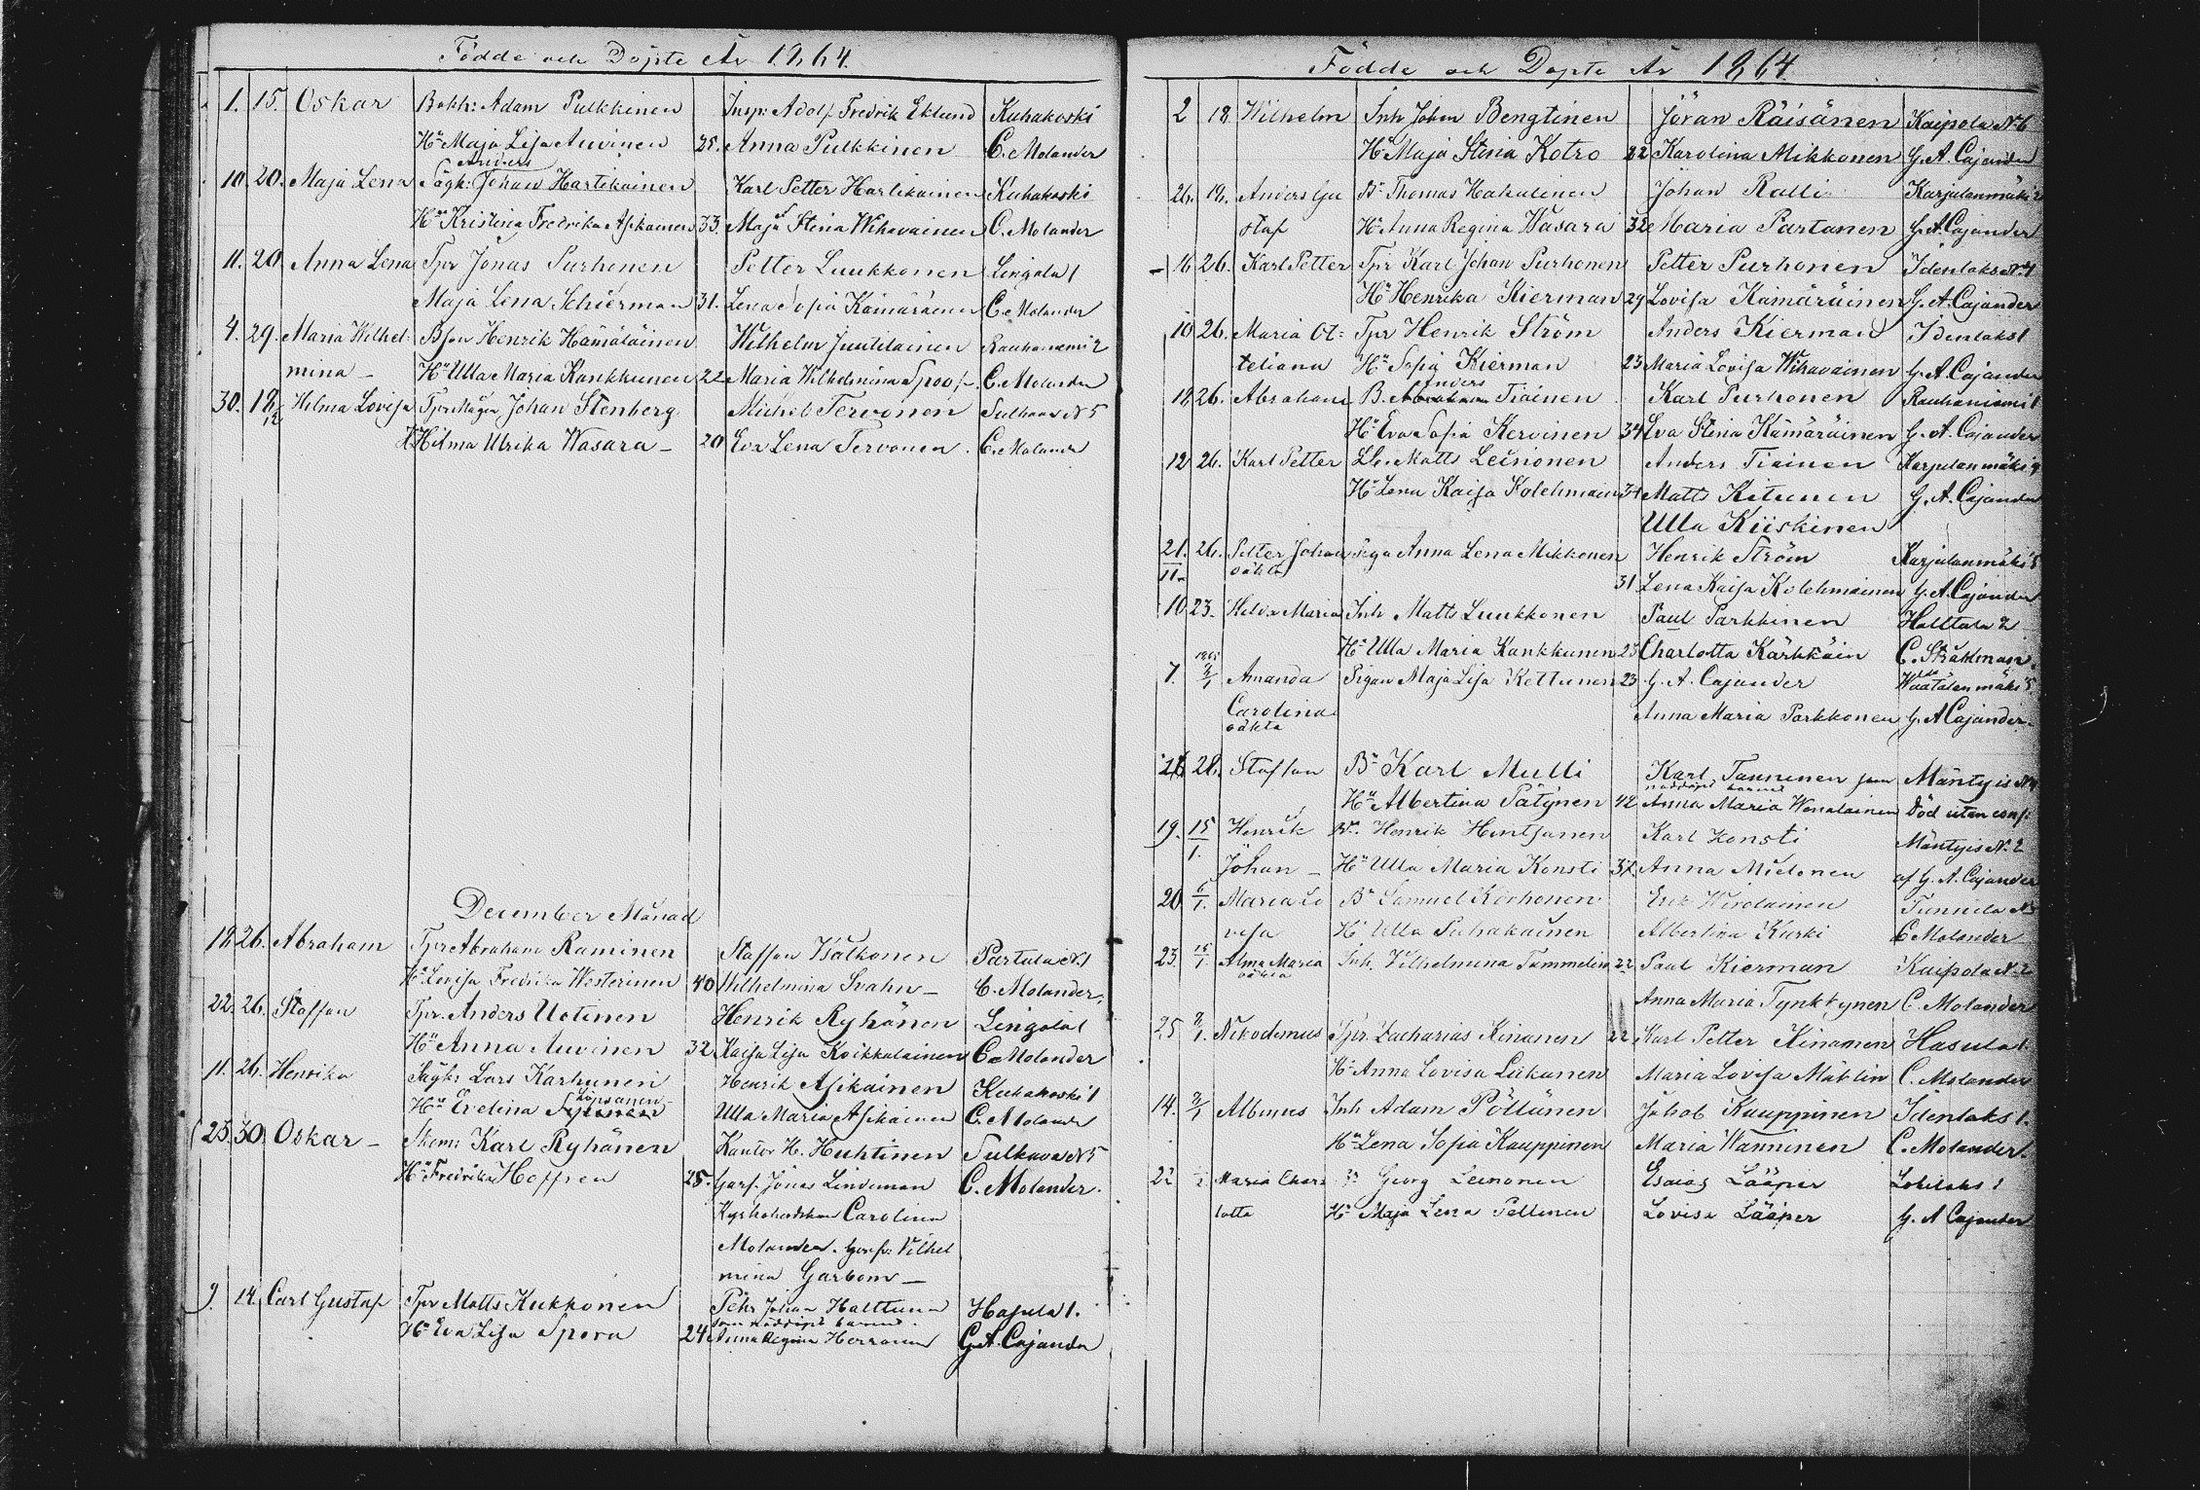 Födde och Döpte År 1864.
1. 15. Oskar Bokh: Adam Pulkkinen Insp: Adolf Fredrik Eklund Kuhakoski
Hu Maja Lisa Auvinen 25. Anna Pulkkinen C. Molander
Anders
10. 20. Maja Lena Sågk: Johan Hartikainen Karl Petter Hartikainen Kuhakoski
Hu Kristina Fredrika Asikainen 33. Maja Stina Wihavainen C. Molander
11. 20. Anna Lena Tpr Jonas Purhonen Petter Luukkonen Lingola 1
Maja Lena Schierman 31. Lena Sofia Kämäräinen C. Molander
4. 29. Maria Wilhel- Bson Henrik Hämäläinen Wilhelm Juutilainen Rauhaniemi 2
mina – Hu Ulla Maria Kankkunen 22 Maria Wilhelmina Spoof C. Molander
30. 18/12 Hilma Lovisa Johan Stenberg Michel Tervonen Sulkava N 5
Hu Hilma Ulrika Wasara – 20 Eva Lena Tervonen. C. Molander
December Månad
18 26. Abraham Tpr Abraham Raminen Staffan Ikälkonen Partala N 1
Hu Lovisa Fredrika Westerinen 40 Wilhelmina Svahn – C. Molander.
22. 26. Staffan Tpr. Anders Uotinen Henrik Ryhänen Lingola 1
Hu Anna Auvinen 32 Kaisa Lisa Koikkalainen C. Molander
11. 26. Henrika Sågk: Lars Karhunen Henrik Asikainen Kuhakoski 1
Hu Evelina Ulla Maria Asikainen C. Molander
25. 30. Oskar – Karl Ryhänen Kantor H. Huhtinen Sulkava N 5
Hu Fredrika Hoffren 25. Garf. Jonas Lindeman C. Molander.
Carolina
Molander. Garf: Vilhel
mina Garbom –
9. 14. Carl Gustaf Tpr Matts Kukkonen Pehr Johan Halttunen Hasula 1.
som nöddöpt barnet.
Hu Eva Lisa Spora 24 Anna Regina Herranen G. A. Cajander
Födde och Döpte År 1864.
2 18 Wilhelm Inh Johan Bengtinen Jöran Räisänen Kaipola N 6
Hu Maja Stina Kotro 22 Karolina Mikkonen G. A. Cajander
26. 18. Anders Gu B. Thomas Hakulinen Johan Ralli Karjulanmäki 2
staf Hu Anna Regina Wasara 32 Maria Partanen G. A. Cajander
16 26. Karl Petter Tpr Karl Johan Purhonen Petter Purhonen Idenlaks N 4
Hu Henrika Kierman 29 Lovisa Kämäräinen G. A. Cajander
10 26. Maria Ot- Tpr Henrik Ström Anders Kierman Idenlaks 1
teliana Hu Sofia Kierman 23 Maria Lovisa Wihavainen G. A. Cajander
Anders
18 26. Abraham B. Abraham Tiainen Karl Purhonen Rauhaniemi 1
Hu Eva Sofia Kervinen 34 Eva Stina Kämäräinen G. A. Cajander
12 26. Karl Petter Matts Leinonen Anders Tiainen Karjulanmäki 9
Hu Lena Kaisa Kolehmain 31 Matts Kitunen G. A. Cajander
Ulla Kiiskinen
21./11 26. Petter Johan Piga Anna Lena Mikkonen Henrik Ström Karjulanmäki 5
oäkta
31 Lena Kaisa Kolehmainen G. A. Cajander
10 23. Helena Maria Inh Matts Luukkonen Paul Parkkinen Halttula 2
Hu Ulla Maria Kankkunen 25 Charlotta Kärkkäin C. Stråhlman.
1865
7. 8/1 Amanda Pigan Maja Lisa Kettunen 23 G. A. Cajander Waatalanmäki 5
Carolina Anna Maria Parkkonen G. A Cajander.
oäkta
26 28. Staffan B. Karl Mulli Karl Tanninen som Mäntyis N 4
nöddöpt barnet
Hu Albertina Pätynen 42 Anna Maria Wenalainen Död utan conf:
19. 15/1. Henrik Bn. Henrik Hintsanen Karl Konsti Mäntyis N. 2
Johan – Hu Ulla Maria Konsti 37 Anna Mielonen af G. A. Cajander
20 6/1. Maria Lo B. Samuel Korhonen Erik Wirolainen Tunnila N 3
visa Hu Ulla Puhakainen Albertina Kurki C Molander
23. 15/1 Alma Maria Inh. Vilhelmina Tammelin 22 Paul Kierman Kaipola N. 2
oäkta
Anna Maria Tynkkynen C. Molander
25 8/1. Nikodemus Tpr. Zacharias Kinanen 22 Karl Petter Kinanen Hasula 1.
Hu Anna Lovisa Liikanen Maria Lovisa Mäklin C. Molander
14. 8/1 Albinus Inh Adam Pöllänen Jakob Kauppinen Idenlaks 1.
Hu Lena Sofia Kauppinen Maria Wänninen C. Molander.
22 Maria Char- B. Georg Leinonen Esaias Lääper Lohilaks 1
lotta Hu Maja Lena Pellinen Lovisa Lääper G. A Cajander